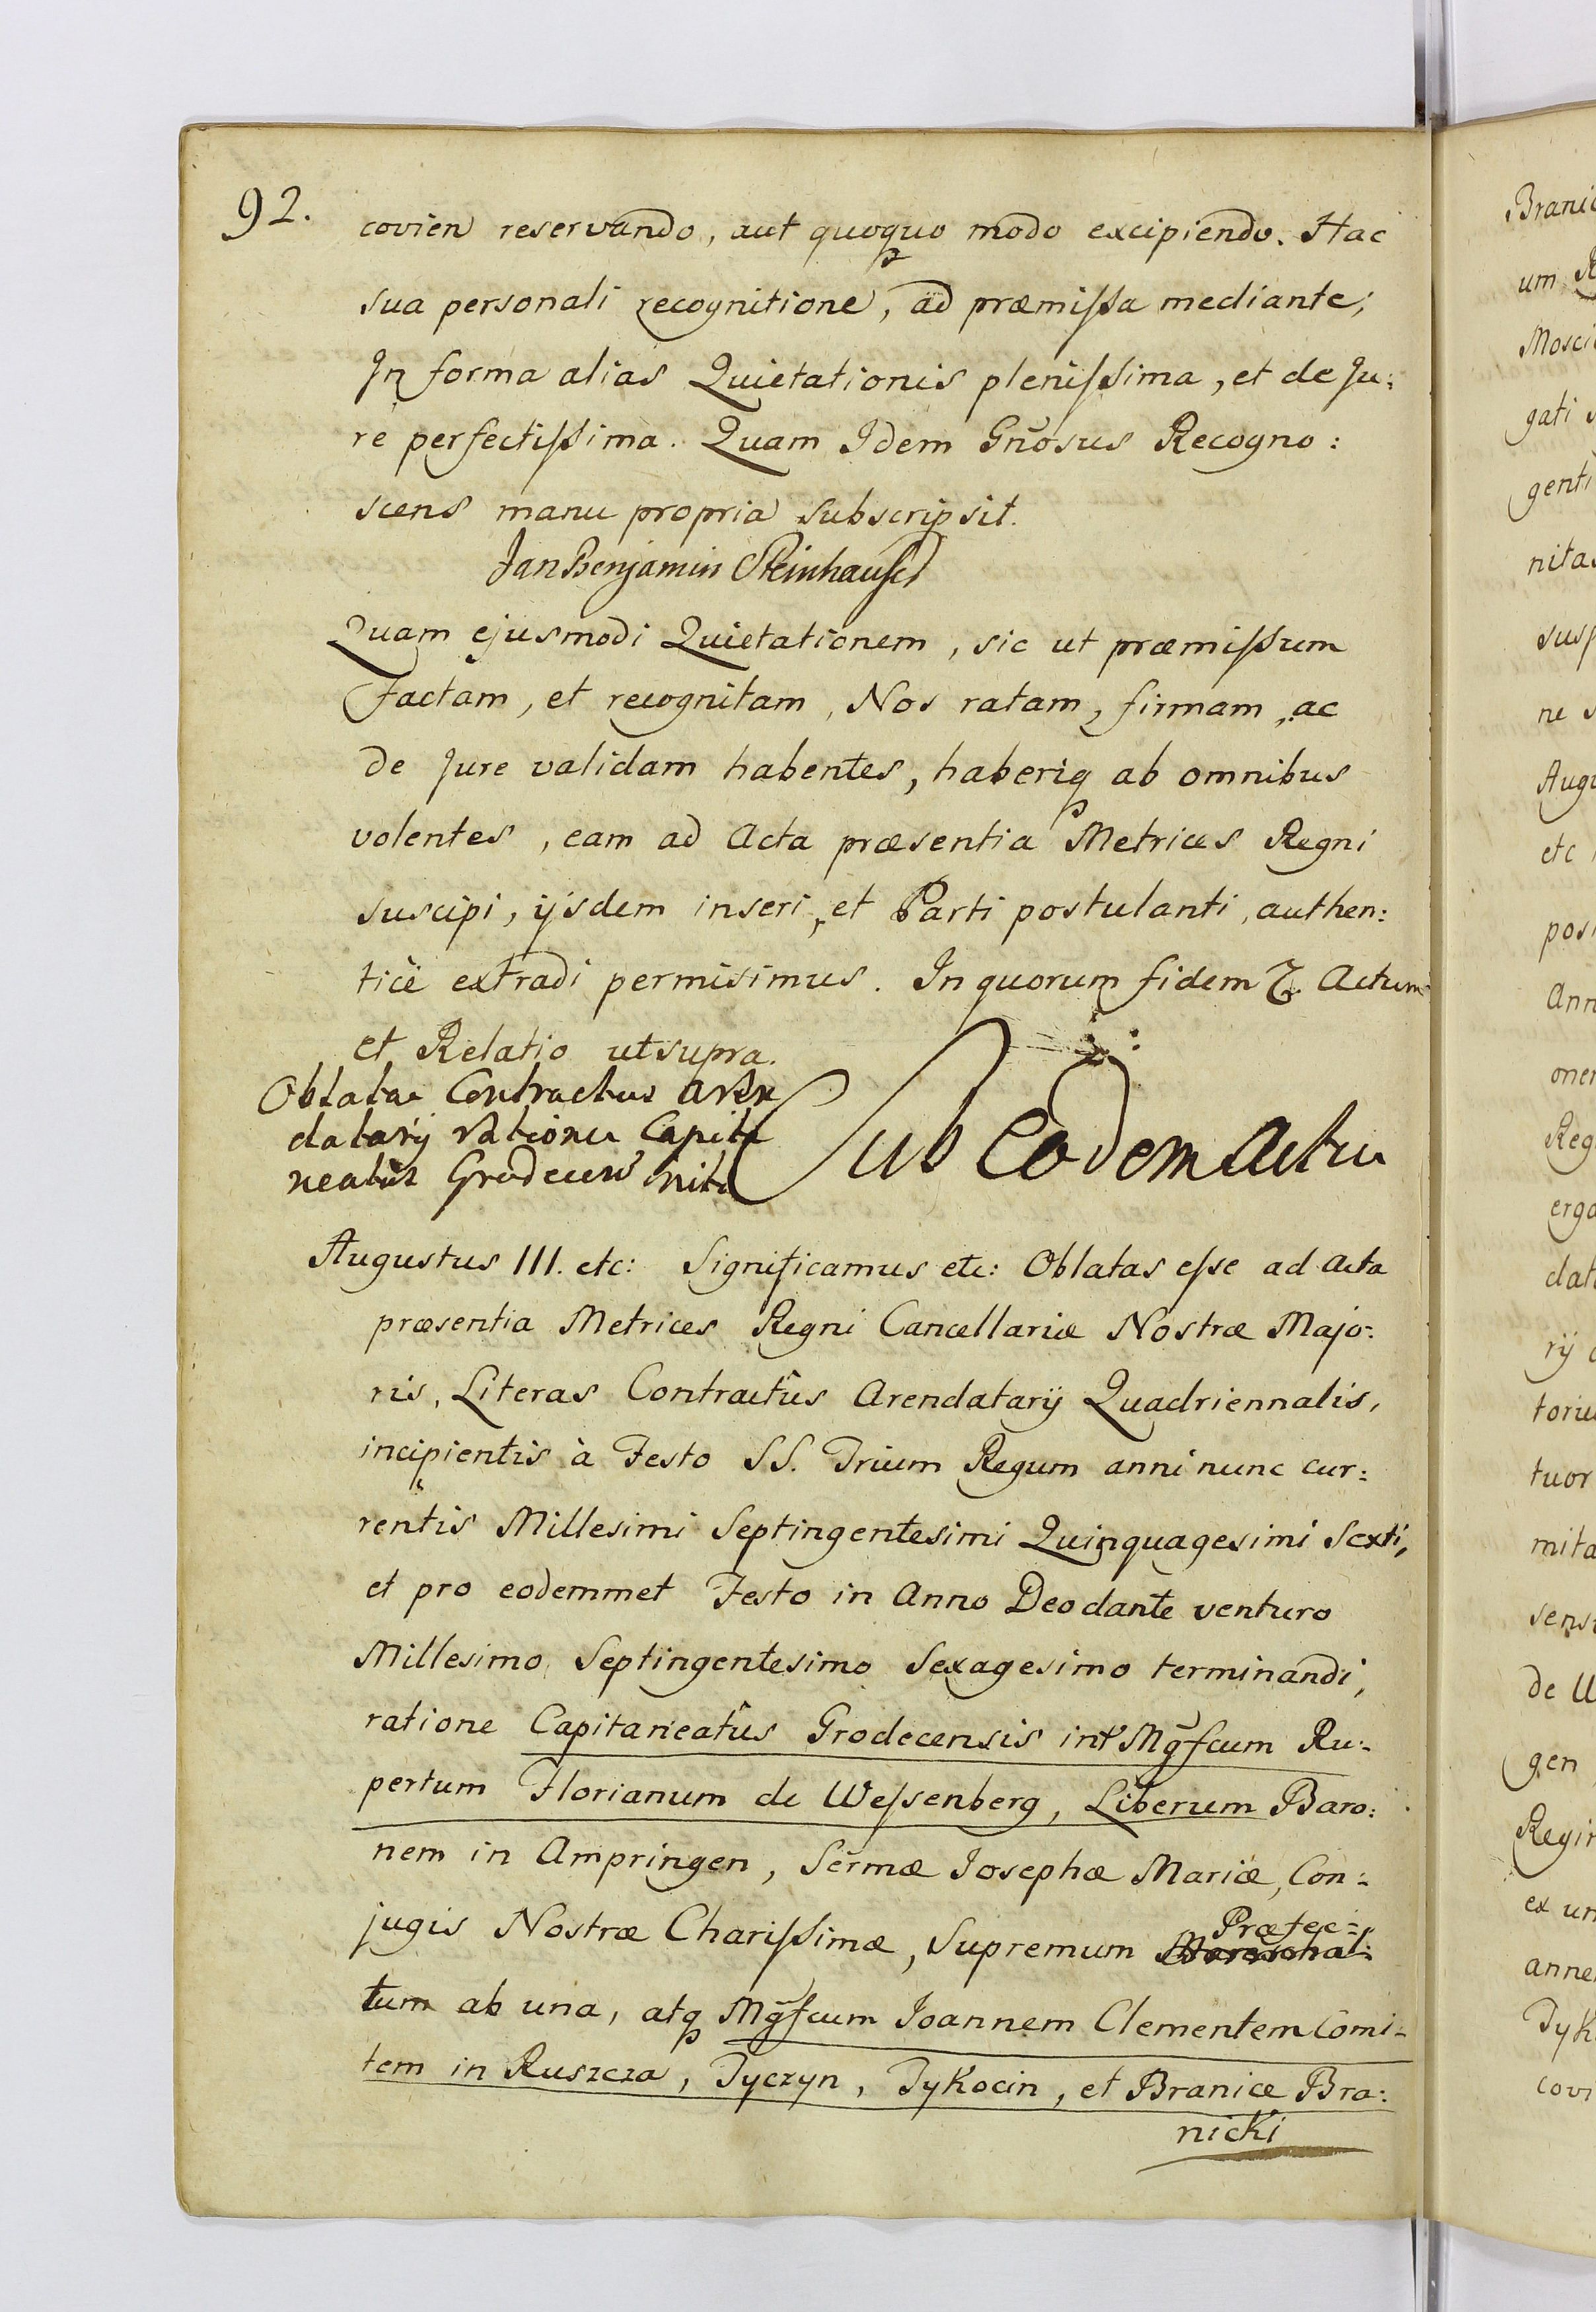 92.
covien reservando, aut quoquo modo excipiendo. Hac
sua personali recognitione, ad præmissa mediante;
In forma alias Quietationis plenissima, et de Ju:
re perfectissima. Quam Idem Gnōsus Recogno:
scens manu propria subscripsit.
Jan Benjamin Steinhauser
Quam ejusmodi Quietationem, sic ut præmissum
Factam, et recognitam, Nos ratam, firmam, ac
de Jure validam habentes, haberiq ab omnibus
volentes, eam ad Acta præsentia Metrices Regni
suscipi, ijsdem inseri, et Parti postulanti, authen:
tice extradi permisimus. In quorum fidem Actum
et Relatio ut supra.
Oblatæ Contractus Aren
datarij ratione Capita
neatûs Grodecen
Sub Eodem Actu
Augustus III. etc: Significamus etc: Oblatas esse ad Acta
præsentia Metrices Regni Cancellariæ Nostræ Majo:
ris, Literas Contractûs Arendatarij Quadriennalis,
incipientis à Festo SS. Trium Regum anni nunc cur:
rentis Millesimi Septingentesimi Quinquagesimi Sexti,
et pro eodemmet Festo in Anno Deo dante venturo
Millesimo Septingentesimo Sexagesimo terminandi,
ratione Capitaneatûs Grodecensis int Mgfcum Ru:
pertum Florianum de Wessenberg, Liberum Baro:
nem in Ampringen, Sermæ Josephæ Mariæ, Con:
jugis Nostræ Charissimæ, Supremum Præfec:
tum ab una, atq Mgfcum Joannem Clementem Comi:
tem in Ruszcza, Tyczyn, Tykocin, et Branice Bra:
nicki
Branic
um
Mosci
gati
genti
nita
ne
Augu
etc
pos
Ann
oner
Reg
erga
dat
rij
toriu
tuor
mita
sens
de W
gen
Regi
ex un
anne
Tyk
covi